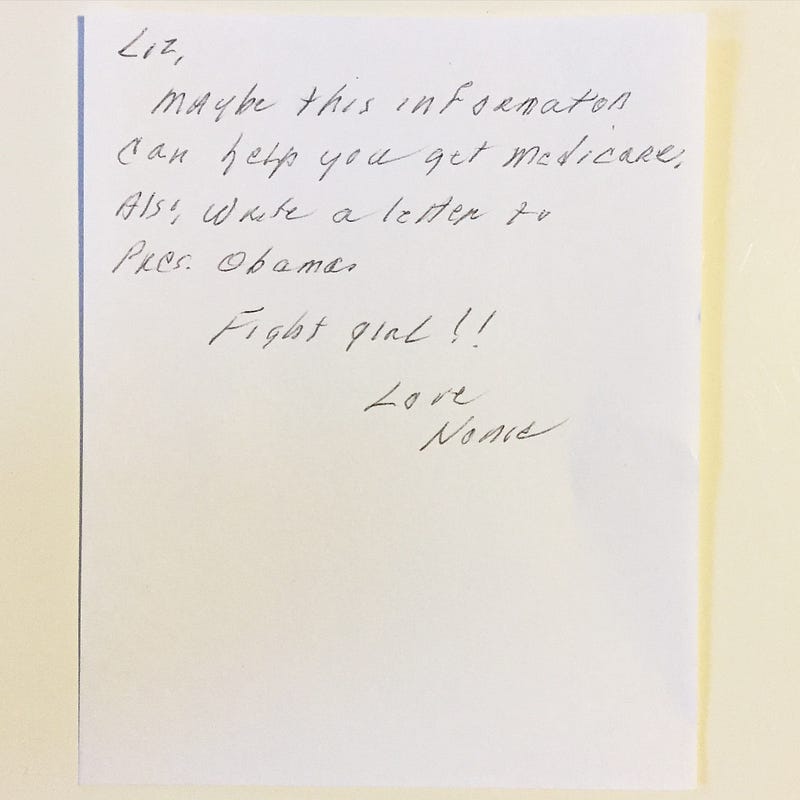 Liz,
Maybe this information
can help you get medicare.
Also, write a letter to
Pres. Obama.
Fight girl!!
Love